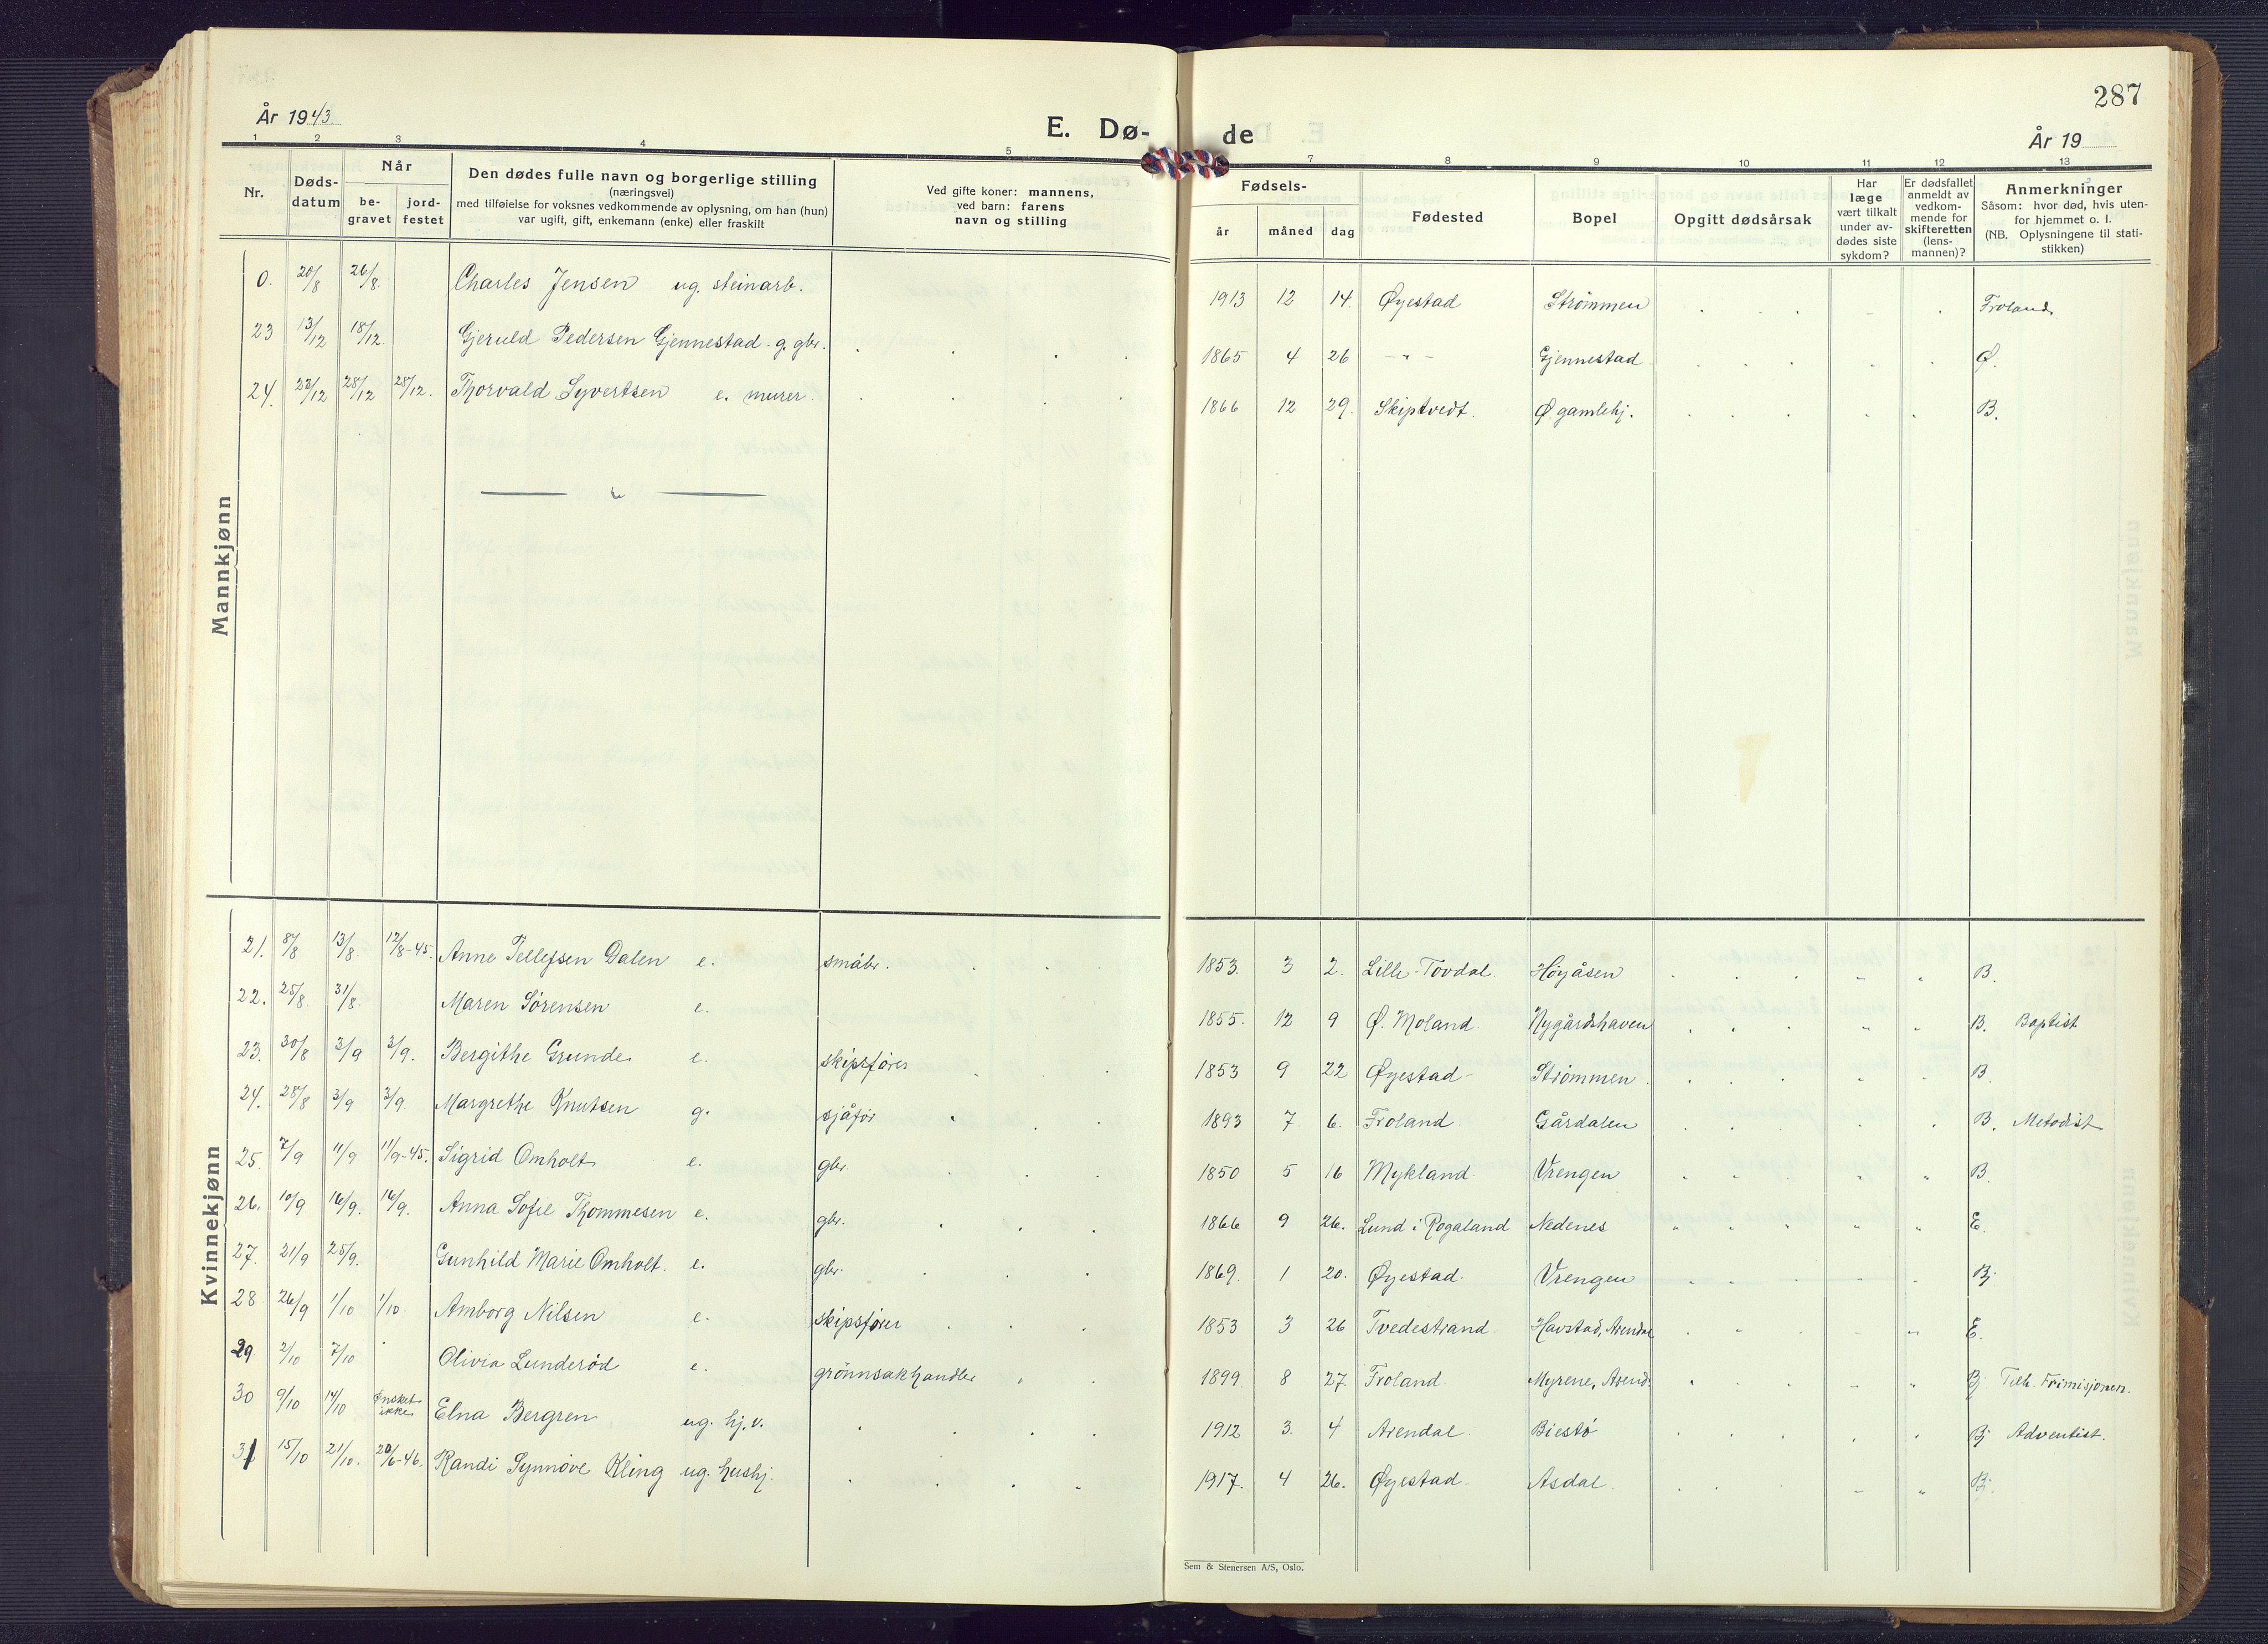 287
År 1943.
E. Dø-
de
År 19
1 2 3 4 5 7 8 9 10 11 12 13
Nr.
Døds-
datum
Når
be-
gravet
jord-
festet
Den dødes fulle navn og borgerlige stilling
(næringsvei)
med tilføielse for voksnes vedkommende av oplysning, om han (hun)
var ugift, gift, enkemann (enke) eller fraskilt
Ved gifte koner: mannens,
ved barn: farens
navn og stilling
Fødsels-
år måned dag
Fødested
Bopel
Opgitt dødsårsak
Har
læge
vært tilkalt
under av-
dødes siste
sykdom?
Er dødsfallet
anmeldt av
vedkom-
mende for
skifteretten
(lens-
mannen)?
Anmerkninger
Såsom: hvor død, hvis uten-
for hjemmet o. l.
(NB. Oplysningene til stati-
stikken)
Mannkjønn
0. 20/8 26/8. Charles Jensen ug. steinarb. 1913 12 14. Øyestad Strømmen Froland
23 13/12 18/12. Gjeruld Pedersen Gjennestad g. gbr. 1865 4 26 - " - Gjennestad Ø.
24. 23/12 28/12 28/12. Thorvald Syvertsen e. murer. 1866 12 29. Skiptvedt. Ø. gamlehj. B.
Kvinnekjønn
21. 8/8 13/8 12/8-45. Anne Tellefsen Dalen e. småbr. 1853. 3 2. Lille-Tovdal. Høyåsen B.
22. 25/8. 31/8. Maren Sørensen e. 1855. 12 9 Ø. Moland. Nygårdshaven B. Baptist
23. 30/8 3/9 3/9. Bergithe Grunde e. skipsfører 1853 9 22 Øyestad - Strømmen. B.
24. 28/8 3/9 3/9. Margrethe Knutsen g. sjåfør 1893 7. 6. Froland Gårdalen B. Metodist
25. 7/9 11/9 11/9-45. Sigrid Omholt e. gbr. 1850 5 16 Mykland Vrengen B.
26. 10/9 16/9. 16/9. Anna Sofie Thommesen e. gbr. 1866 9 26. Lund i Rogaland Nedenes E.
27. 21/9 25/9. Gunhild Marie Omholt. e. gbr. 1869. 1 20. Øyestad. Vrengen Bj.
28 26/9 1/10 1/10. Amborg Nilsen e. skipsfører 1853 3 26 Tvedestrand. Havstad, Arendal E.
29 2/10 7/10 Olivia Lunderød e. grönnsakhandler 1899. 8 27. Froland. Myrene, Arend. Bj. Tilh. Frimisjonen.
30 9/10 14/10 ønsket ikke Elna Bergren ug. hj.v. 1912 3. 4 Arendal Biestø Bj Adventist.
31 15/10 21/10. 20/6-46. Randi Synnøve Kling ug. hushj. 1917. 4 26. Øyestad - Asdal Bj.
Sem & Stenersen A/S, Oslo.